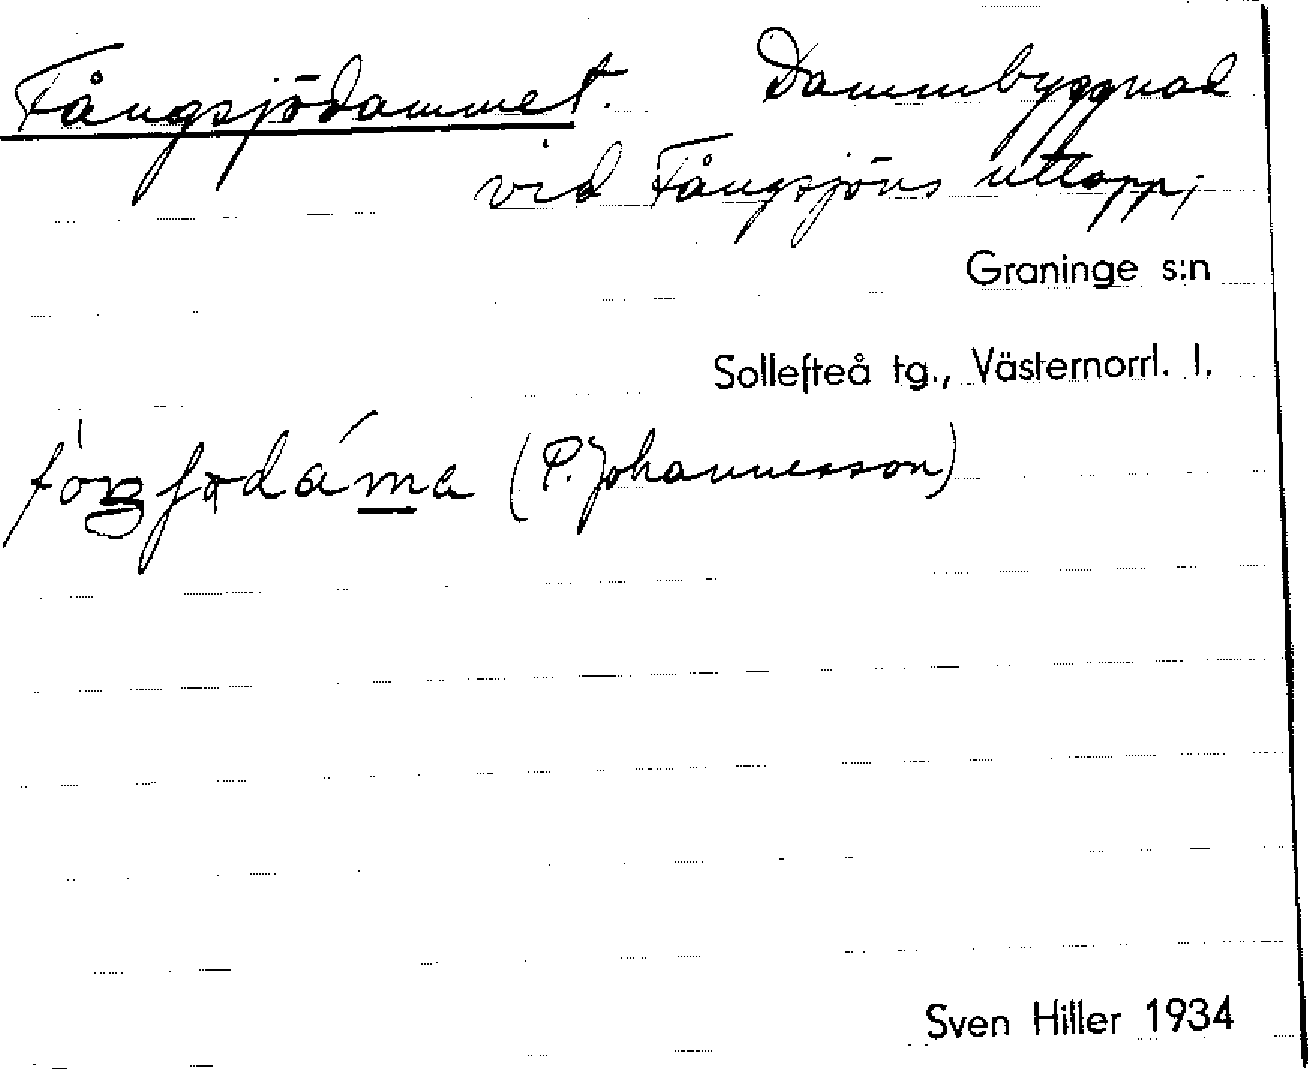 Fångsjödammet. Dammbyggnad
vid Fångsjöns utlopp;
Graninge s:n
Sollefteå tg., Västernorrl. l.
(P. Johannesson)
Sven Hiller 1934